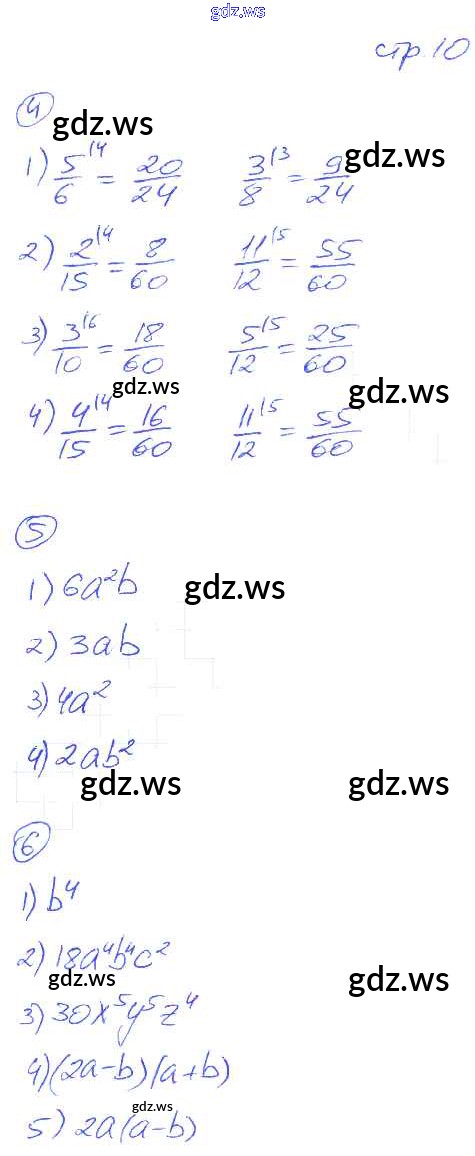 gdz.ws
стр 10
4
gdz.ws
1) 5/6 |4 = 20/24 3/8 |3 = 9/24
gdz.ws
2) 2/15 |4 = 8/60 11/12 |5 = 55/60
3) 3/10 |6 = 18/60 5/12 |5 = 25/60
gdz.ws gdz.ws
4) 4/15 |4 = 16/60 11/12 |5 = 55/60
5
1) 6a²b gdz.ws
2) 3ab
3) 4a²
4) 2ab²
gdz.ws gdz.ws
6
1) b⁴
2) 18a⁴b⁴c²
gdz.ws gdz.ws
3) 30x⁵y⁵z⁴
4) (2a-b)(a+b)
gdz.ws
5) 2a(a-b)